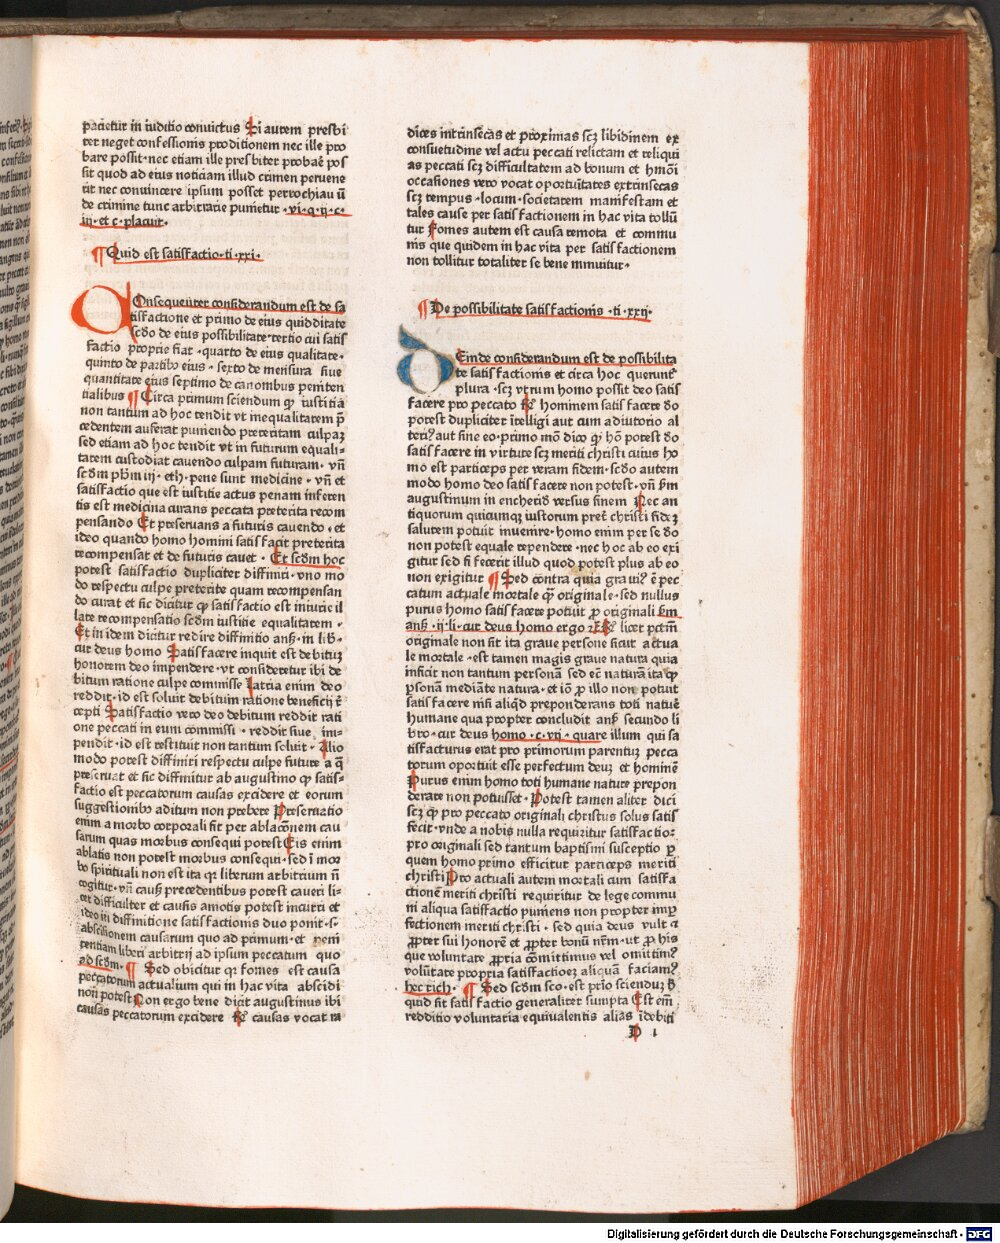 patietur in iuditio convictus Si autem presbi
ter neget confessionis proditionem nec ille pro
bare possit·nec etiam ille presbiter probaē pos
sit quod ad eius noticiam illud crimen peruene
rit nec conuincere ipsum posset perrochiau ū
de crimine tunc arbitrarie punietur·vi·q·ij·c·
iij·et c·placuit·
¶Quid est satisfactio·ti·xxi·
COnsequēter considerandum est de sa
tisfactione et primo de eius quidditate
scdo de eius possibilitate·tertio cui satis
factio proprie fiat·quarto de eius qualitate·
quinto de partibꝰ eius·sexto de mensura siue
quantitate eius septimo de canonibus peniten
tialibus ¶Circa primum sciendum ꝙ iustitia
non tantum ad hoc tendit vt inequalitatem p̄
cedentem auferat puniendo preteritam culpaꝫ
sed etiam ad hoc tendit vt in futurum equali-
tatem custodiat cauendo culpam futuram·vn̄
scdm pbm iij·eth·pene sunt medicine·vn̄ et
satisfactio que est iustitie actus penam inferen
tis est medicina curans peccata preterita recom
pensando Et preseruans a futuris cauendo·et
ideo quando homo homini satisfacit preterita
recompensat et de futuris cauet·Et scdm hoc
potest satisfactio dupliciter diffiniri·vno mo
do respectu culpe preterite quam recompensan
do curat et sic dicitur ꝙ satisfactio est iniurie il
late recompensatio scdm iustitie equalitatem·
Et in idem dicitur redire diffinitio anß·in lib·
cur deus homo Satisfacere inquit est debituꝫ
honorem deo impendere·vt consideretur ibi de
bitum ratione culpe commisse Latria enim deo
reddit·id est soluit debitum ratione beneficij r̄
cepti Satisfactio vero deo debitum reddit rati
one peccati in eum commissi·reddit siue im-
pendit·id est restituit non tantum soluit·Alio
modo potest diffiniri respectu culpe future a q̄
preseruat et sic diffinitur ab augustino ꝙ satis-
factio est peccatorum causas excidere et eorum
suggestionibꝰ aditum non prebere Preseruatio
enim a morbo corporali fit per ablacōnem cau
sarum quas morbus consequi potest Eis enim
ablatis non potest morbus consequi·sed ī mor
bo spirituali non est ita qr liberum arbitrium n̄
cogitur·vn̄ causß precedentibus potest caueri li-
cet difficulter et causis amotis potest incurri et
ideo in diffinitione satisfactionis duo ponit·s·
abscisionem causarum quo ad primum·et reni
tentiam liberi arbitrij ad ipsum peccatum quo
ad scdm·¶Sed obicitur qr fomes est causa
peccatorum actualium qui in hac vita abscidi
non potest Non ergo bene dicit augustinus ibi
causas peccatorum excidere causas vocat ra
dices intrinsecas et proximas scꝫ libidinem ex
consuetudine vel actu peccati relictam et reliqui
as peccati scꝫ difficultatem ad bonum et hmōi
occasiones vero vocat oportūitates extrinsecas
scꝫ tempus·locum·societatem manifestam et
tales cause per satisfactionem in hac vita tollū
tur Fomes autem est causa remota et commu
nis que quidem in hac vita per satisfactionem
non tollitur totaliter se bene minuitur·
¶De possibilitate satisfactionis·ti·xxij·
DEinde considerandum est de possibilita
te satisfactionis et circa hoc querunt
plura·scꝫ vtrum homo possit deo satis
facere pro peccato hominem satisfacere do
potest dupliciter ītelligi aut cum adiutorio al
teriꝰ aut sine eo·primo mō dico ꝙ hō potest do
satisfacere in virtute scꝫ meriti christi cuius ho
mo est particeps per veram fidem·scdo autem
modo homo deo satisfacere non potest·vn̄ sm
augustinum in encherid versus finem Nec an
tiquorum quicumqꝫ iustorum preter christi fideꝫ
salutem potuit inuenire·homo enim per se do
non potest equale rependere·nec hoc ab eo exi
gitur sed si fecerit illud quod potest plus ab eo
non exigitur ¶Sed contra quia grauiꝰ ē pec
catum actuale mortale q̄ originale·sed nullus
purus homo satisfacere potuit ꝓ originali sm
anß·ij·li·cur deus homo ergo licet pctm
originale non sit ita graue persone sicut actua
le mortale·est tamen magis graue natura quia
inficit non tantum personā sed ec̄ naturā ita ꝙ
ꝑsonā mediāte natura·et iō ꝓ illo non potuit
satisfacere nisi aliqd preponderans toti natuē
humane qua propter concludit anß secundo li
bro·cur deus homo·c·vij·quare illum qui sa
tisfacturus erat pro primorum parentuꝫ pecca
torum oportuit esse perfectum deuꝫ et hominē
Purus enim homo toti humane nature prepon
derare non potuisset·Potest tamen aliter dici
scꝫ ꝙ pro peccato originali christus solus satis
fecit·vnde a nobis nulla requiritur satisfactio
pro originali sed tantum baptismi susceptio ꝑ
quem homo primo efficitur particeps meriti
christi Pro actuali autem mortali cum satisfa
ctionē meriti christi requiritur de lege commu
ni aliqua satisfactio puniens non propter imꝑ
fectionem meriti christi·sed quia deus vult
ꝓpter sui honorē et ꝓpter bonū nrm·ut ꝓ his
que voluntate ꝓpria cōmittimus vel omittimꝰ
volūtate propria satisfactioeꝫ aliquā faciamꝰ
hec rich·¶Sed scdm sco·est prio sciendu
quid sit satisfactio generaliter sumpta Est em̄
redditio voluntaria equiualentis alias īdebiti
D 1
Digitalisierung gefördert durch die Deutsche Forschungsgemeinschaft - DFG